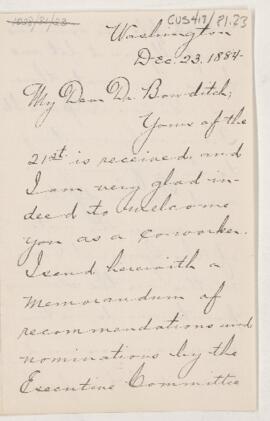 Washington
Dec. 23. 1884.
My Dear Dr. Bowditch;
Yours of the
21st. is received and
I am very glad in-
deed to welcome
you as a coworker.
I send herewith a
memorandum of
recommendations and
nominations by the
Executive Committee